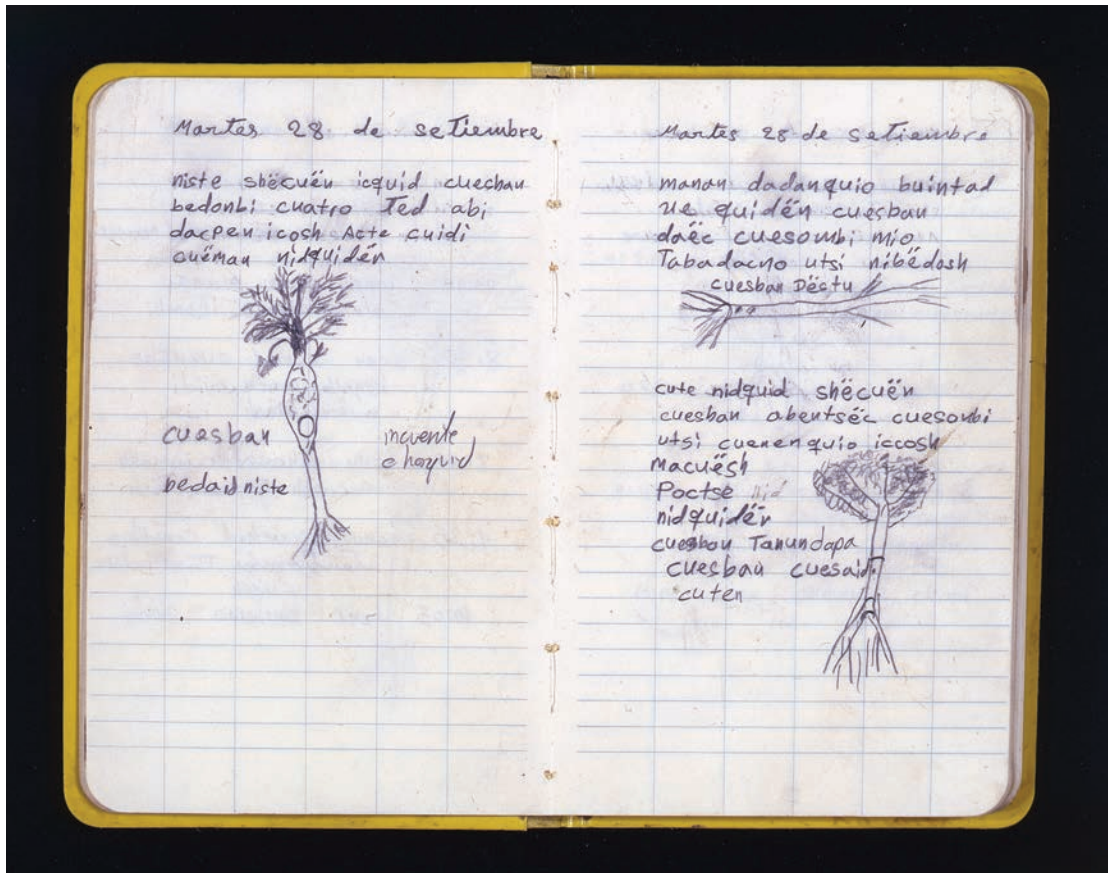 Martes 28 de setiembre
niste shëcuën icquid cuesban
bedonbi cuatro Ted abi
dacpen icosh Acte cuidi
cuëman nidquidën
cuesban
bedaid niste
Martes 28 de setiembre
manan dadanquio buintad
ue quidën cuesban
daëc cuesombi mio
Tabadacno utsi nibëdosh
cuesban Dëctu
cute nidquid shëcuën
cuesban abentsëc cuesonbi
utsi cuenenquio iccosh
macuësh
Poctse nid
nidquidën
cuesban Tanundapa
cuesban cuesaid
cuten